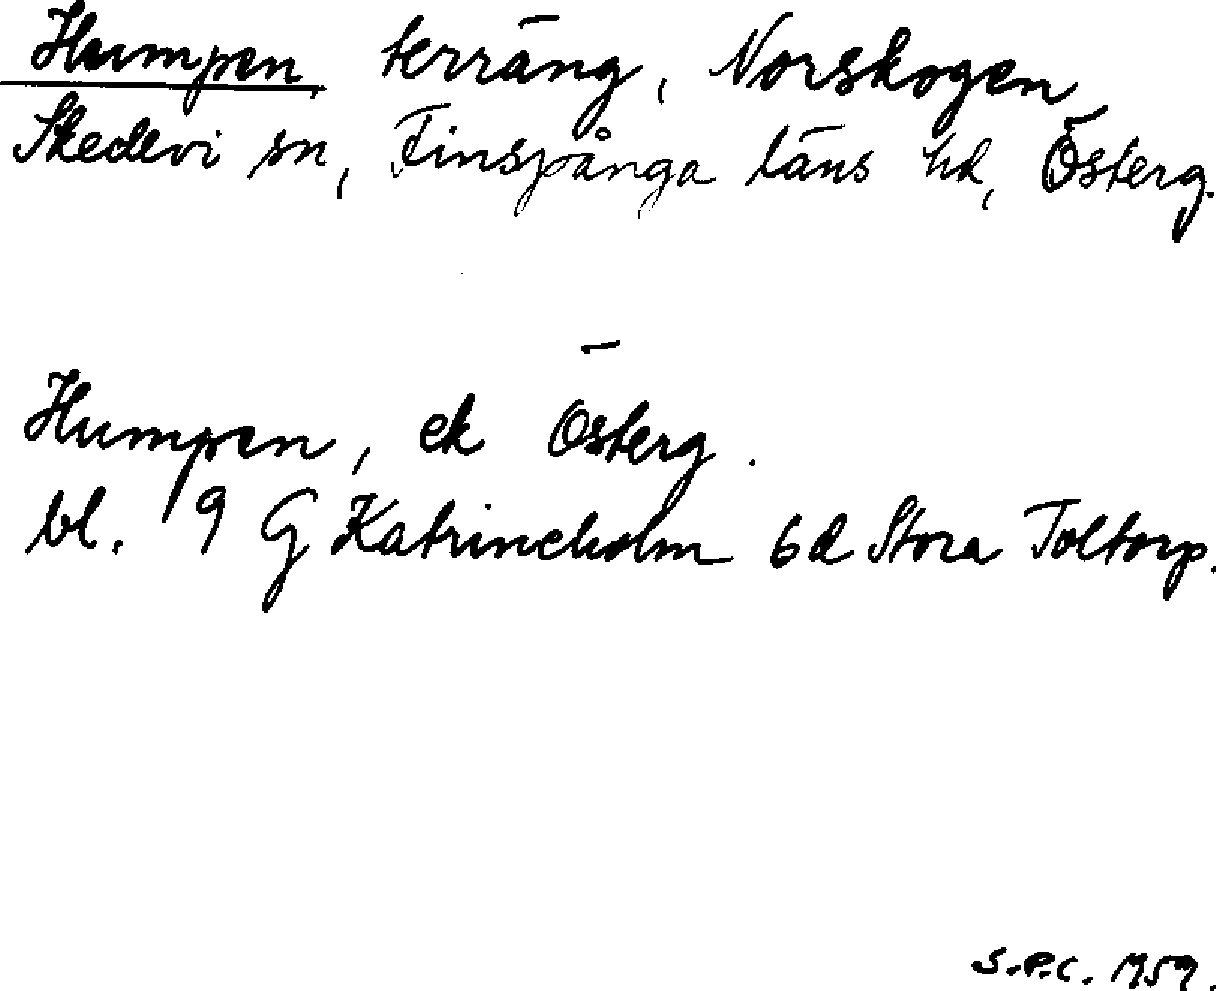 Humpen, terräng, Norskogen,
Skedevi sn, Finspånga läns hd, Österg.
Humpen, ek Österg.
bl. 9 G Katrineholm 6d Stora Toltorp.
S.P.C. 1959.